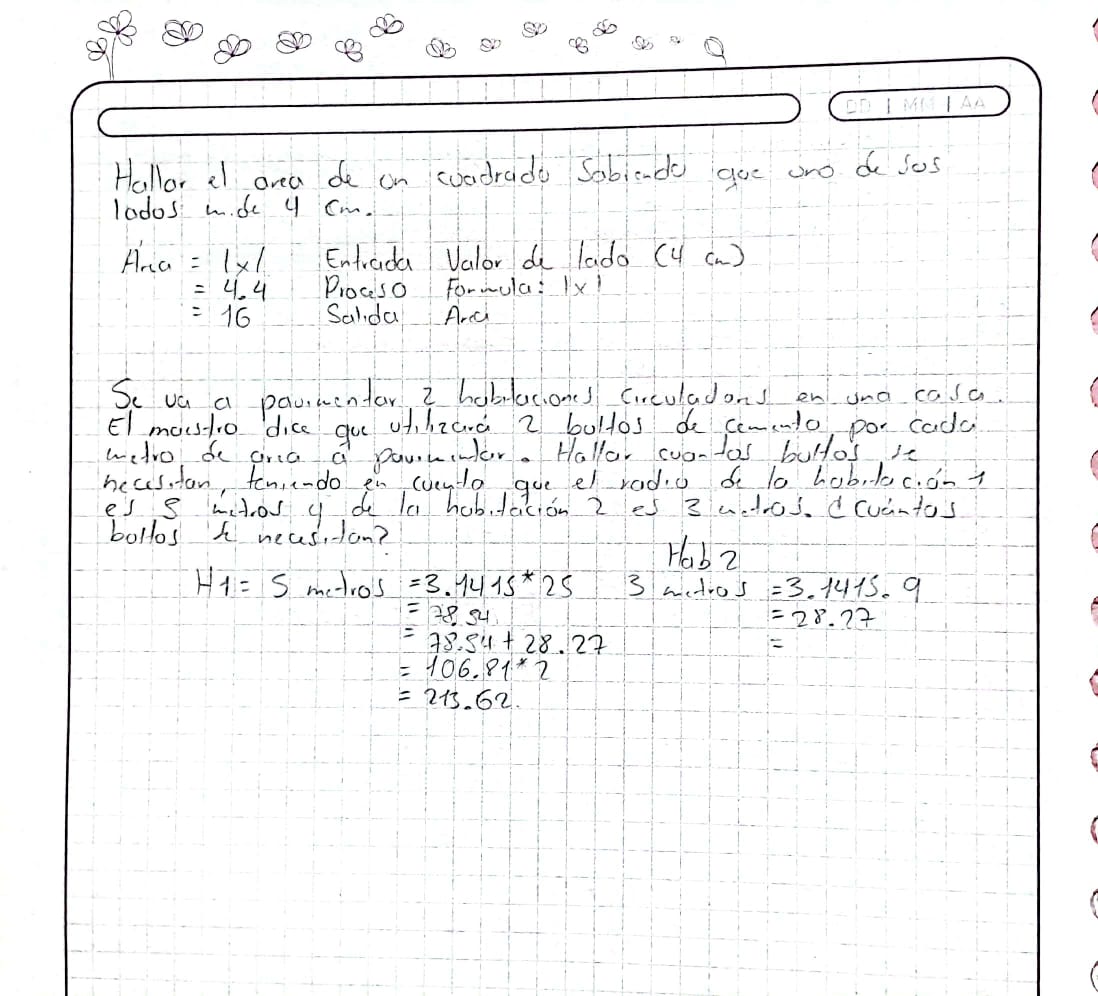 DD | MM | AA
Hallar el area de un cuadrado Sabiendo que uno de sus
lados mide 4 cm.
Área = l x l Entrada Valor de lado (4 cm)
= 4.4 Proceso Formula: l x l
= 16 Salida Area
Se va a pavimentar 2 habitaciones en una casa.
El maestro dice que utilizará 2 bultos de cemento por cada
metro de area a pavimentar. Hallar cuantos bultos se
necesitan, teniendo en cuenta que el radio de la habitación 1
es 5 metros y de la habitación 2 es 3 metros. ¿Cuántos
bultos se necesitan?
Hab 2
H1 = 5 metros = 3.1415 * 25 3 metros = 3.1415. 9
= 78.54 = 28.27
= 78.54 + 28.27 =
= 106.81 * 2
= 213.62.